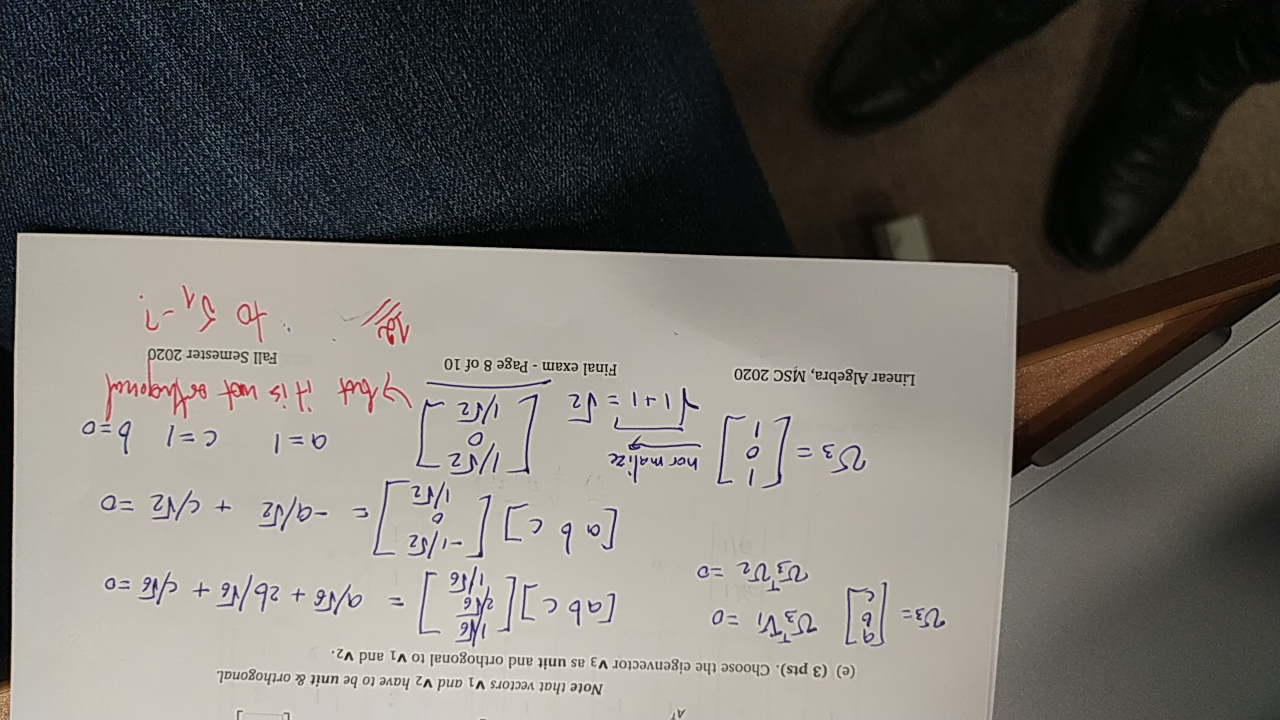 Note that vectors v₁ and v₂ have to be unit & orthogonal.
(e) (3 pts). Choose the eigenvector v₃ as unit and orthogonal to v₁ and v₂.
v₃ = [a b c] v₃ᵀv₁ = 0 [a b c] [1/√6 2/√6 1/√6] = a/√6 + 2b/√6 + c/√6 = 0
v₃ᵀv₂ = 0 [a b c] [-1/√2 0 1/√2] = -a/√2 + c/√2 = 0
v₃ = [1 0 1] normalize √1+1 = √2 [1/√2 0 1/√2] a=1 c=1 b=0
but it is not orthogonal
to v₁ -?
Linear Algebra, MSC 2020 Final exam - Page 8 of 10 Fall Semester 2020